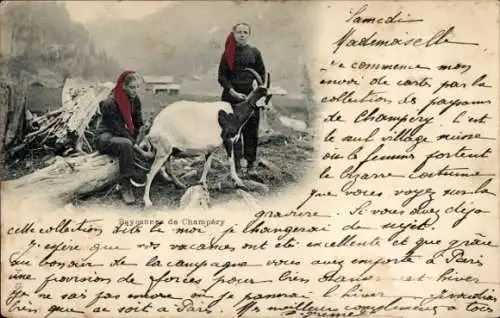 Samedi
Mademoiselle
Je commence mon
envoi de carts par la
collection de paysans
de Champéry. C'est
le seul village suisse
où les femmes portent
le bizarre costume
que vous voyez sur la
gravure. Si vous avez déjà
Paysannes de Champéry
cette collection dites le moi, je changerai de sujet.
J'espère que vos vacances ont été excellente et que grâce
au bon air de la campagne vous avez emporté à Paris
une provision de forces pour bien chanter cet hiver
Je ne sais pas encore où je passerai l'hiver
bien que ce soit à Paris. Mes meilleurs compliments à tous